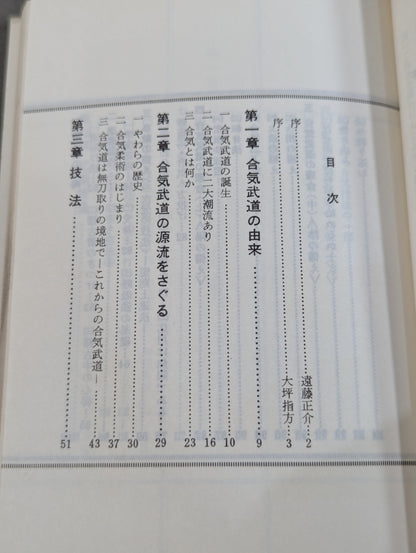 目次
序……遠藤正介…2
序……大坪指方…3
第一章 合気武道の由来……9
一 合気武道の誕生……10
二 合気武道に二大潮流あり……16
三 合気とは何か……23
第二章 合気武道の源流をさぐる……29
一 やわらの歴史……30
二 合気柔術のはじまり……37
三 合気道は無刀取りの境地で―これからの合気武道―……43
第三章 技法……51